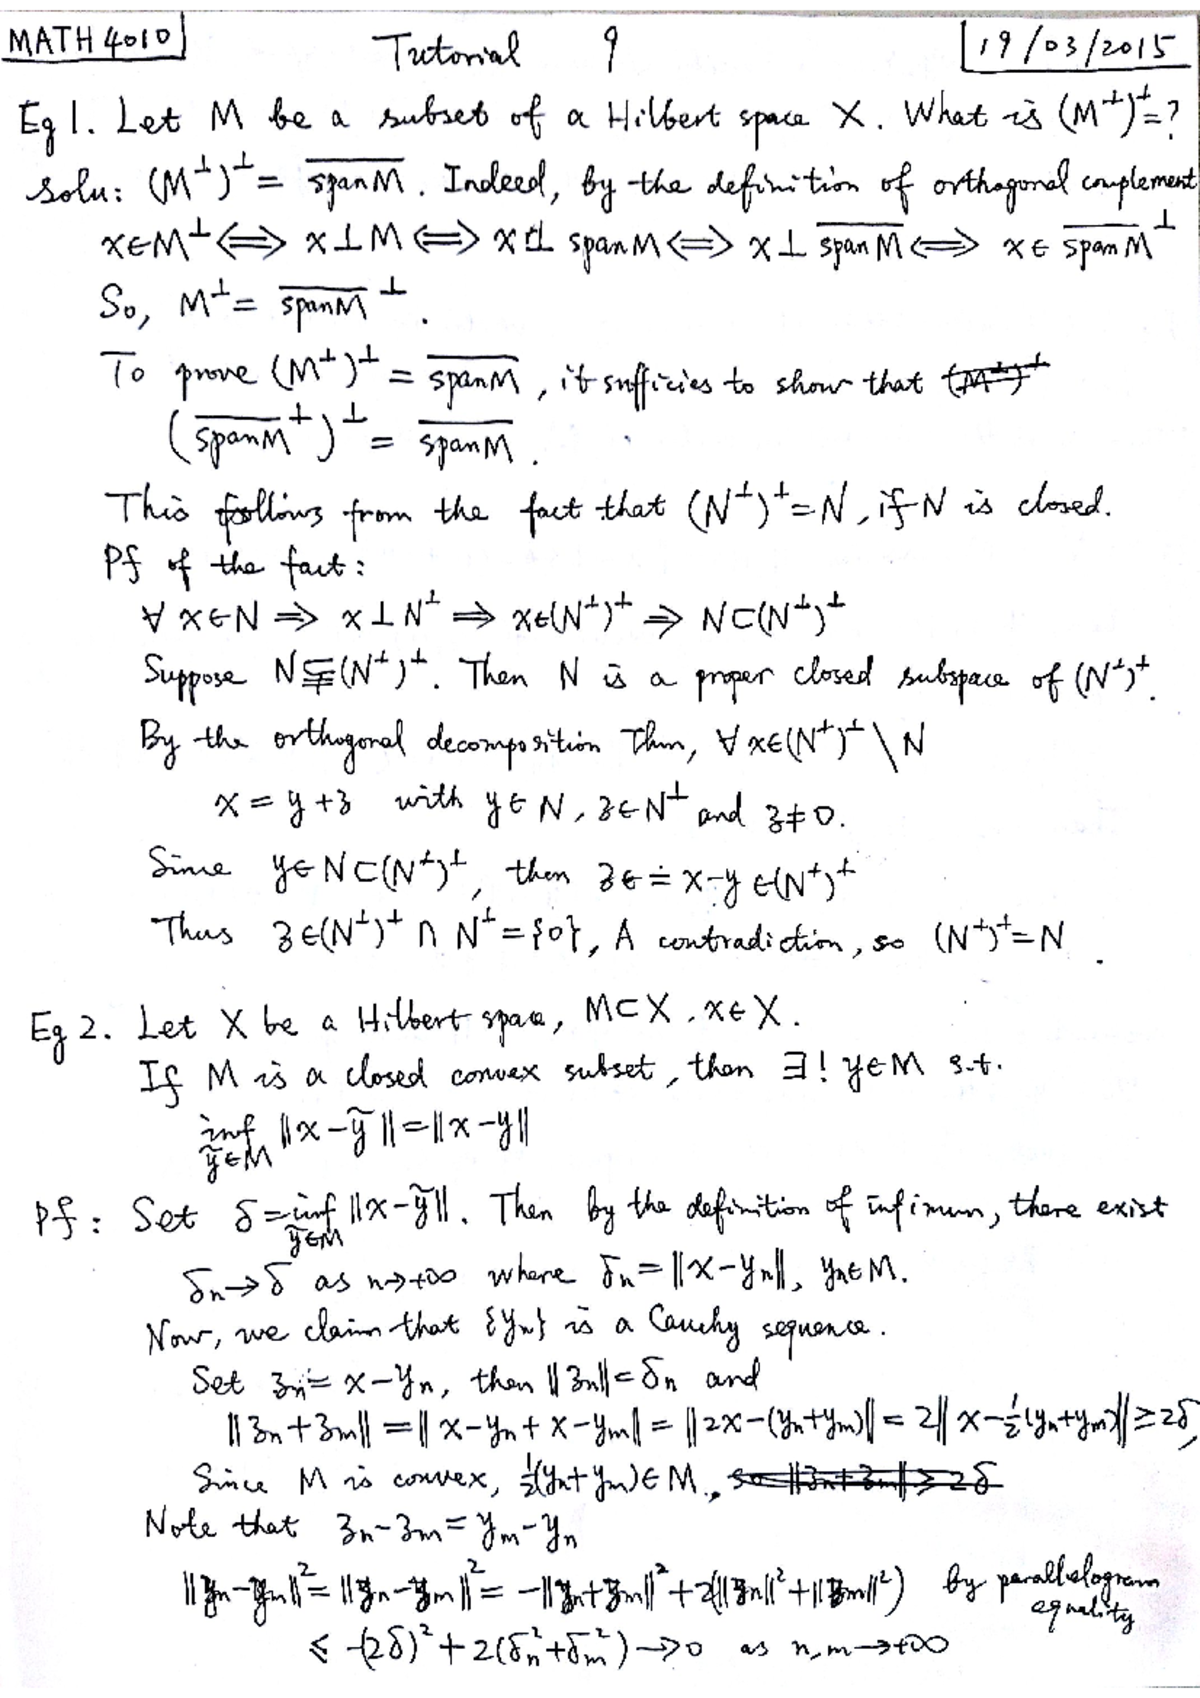 MATH 4010 Tutorial 9 19/03/2015
Eg 1. Let M be a subset of a Hilbert space X. What is (M⊥)⊥=?
Solu: (M⊥)⊥ = \overline{span M}. Indeed, by the definition of orthogonal complement
x∈M⊥ ⟺ x⊥M ⟺ x⊥ span M ⟺ x⊥ \overline{span M} ⟺ x∈ \overline{span M}⊥
So, M⊥ = \overline{span M}⊥.
To prove (M⊥)⊥ = \overline{span M}, it sufficies to show that ~~(M⊥)⊥~~
(\overline{span M}⊥)⊥ = \overline{span M}.
This follows from the fact that (N⊥)⊥=N, if N is closed.
Pf of the fact:
∀ x∈N ⟹ x⊥N⊥ ⟹ x∈(N⊥)⊥ ⟹ N⊂(N⊥)⊥
Suppose N⊊(N⊥)⊥. Then N is a proper closed subspace of (N⊥)⊥.
By the orthogonal decomposition Thm, ∀ x∈(N⊥)⊥ \ N
x = y + z with y∈N, z∈N⊥ and z≠0.
Since y∈N⊂(N⊥)⊥, then z∈ ≐ x-y ∈(N⊥)⊥
Thus z∈(N⊥)⊥ ∩ N⊥ = {0}, A contradiction, so (N⊥)⊥=N.
Eg 2. Let X be a Hilbert space, M⊂X, x∈X.
If M is a closed convex subset, then ∃! y∈M s.t.
inf_{ỹ∈M} ||x-ỹ|| = ||x-y||
Pf: Set δ = inf_{ỹ∈M} ||x-ỹ||. Then by the definition of infimum, there exist
δn→δ as n→+∞ where δn = ||x-yn||, yn∈M.
Now, we claim that {yn} is a Cauchy sequence.
Set zn ≐ x-yn, then ||zn|| = δn and
||zn+zm|| = ||x-yn+x-ym|| = ||2x-(yn+ym)|| = 2||x-½(yn+ym)|| ≥ 2δ,
Since M is convex, ½(yn+ym)∈M., ~~so ||zn+zm|| ≥ 2δ~~
Note that zn-zm = ym-yn
||yn-ym||² = ||zn-zm||² = -||zn+zm||² + 2(||zn||²+||zm||²) by parallelogram equality
≤ -(2δ)² + 2(δn²+δm²) → 0 as n,m→+∞